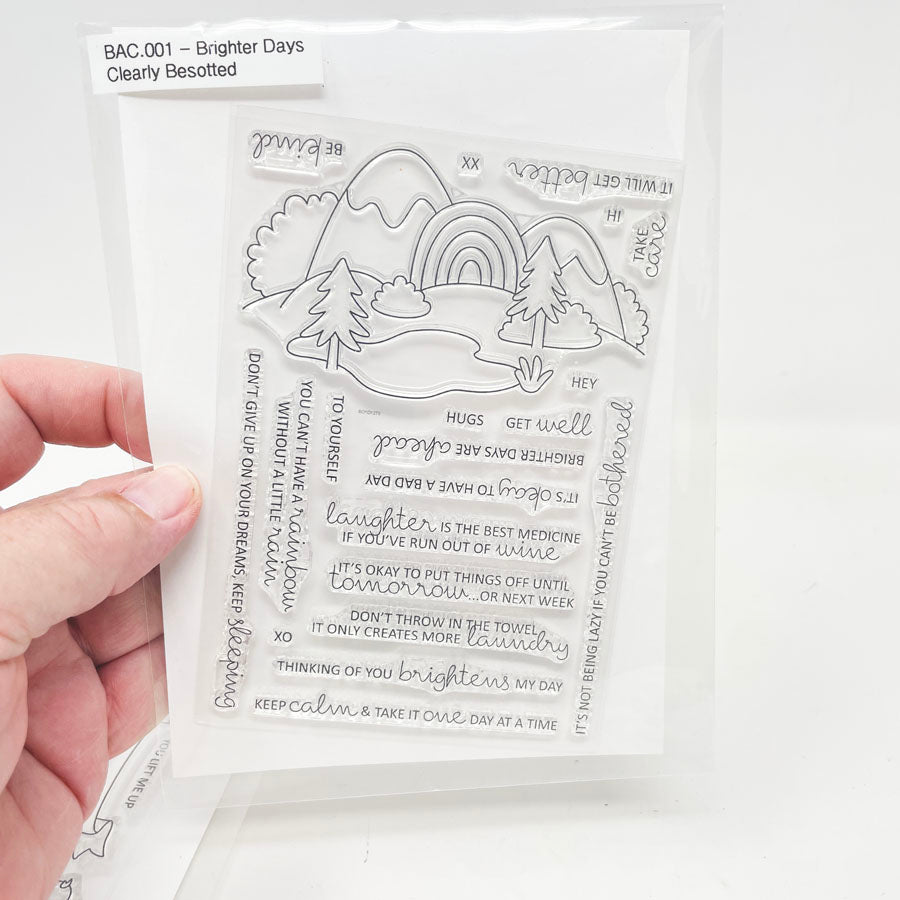 BAC.001 – Brighter Days
Clearly Besotted
BE kind
XX
IT WILL GET better
HI
TAKE
care
HEY
HUGS
GET well
BRIGHTER DAYS ARE ahead
IT'S okay TO HAVE A BAD DAY
laughter IS THE BEST MEDICINE
IF YOU'VE RUN OUT OF wine
IT'S OKAY TO PUT THINGS OFF UNTIL
tomorrow...OR NEXT WEEK
DON'T THROW IN THE TOWEL
IT ONLY CREATES MORE laundry
THINKING OF YOU brightens MY DAY
KEEP calm & TAKE IT one DAY AT A TIME
XO
TO YOURSELF
YOU CAN'T HAVE A rainbow
WITHOUT A LITTLE rain
DON'T GIVE UP ON YOUR DREAMS, KEEP sleeping
IT'S NOT BEING LAZY IF YOU CAN'T BE bothered
YOU LIFT ME UP